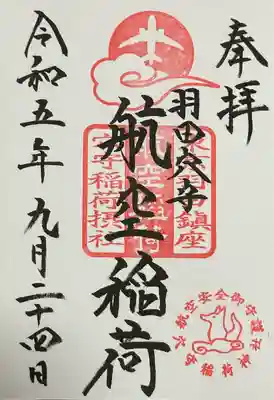 奉拝
羽田穴守
航空稲荷
令和五年九月二十四日
鎮座
航空稲荷
穴守稲荷摂社
航空安全御守護
穴守稲荷神社